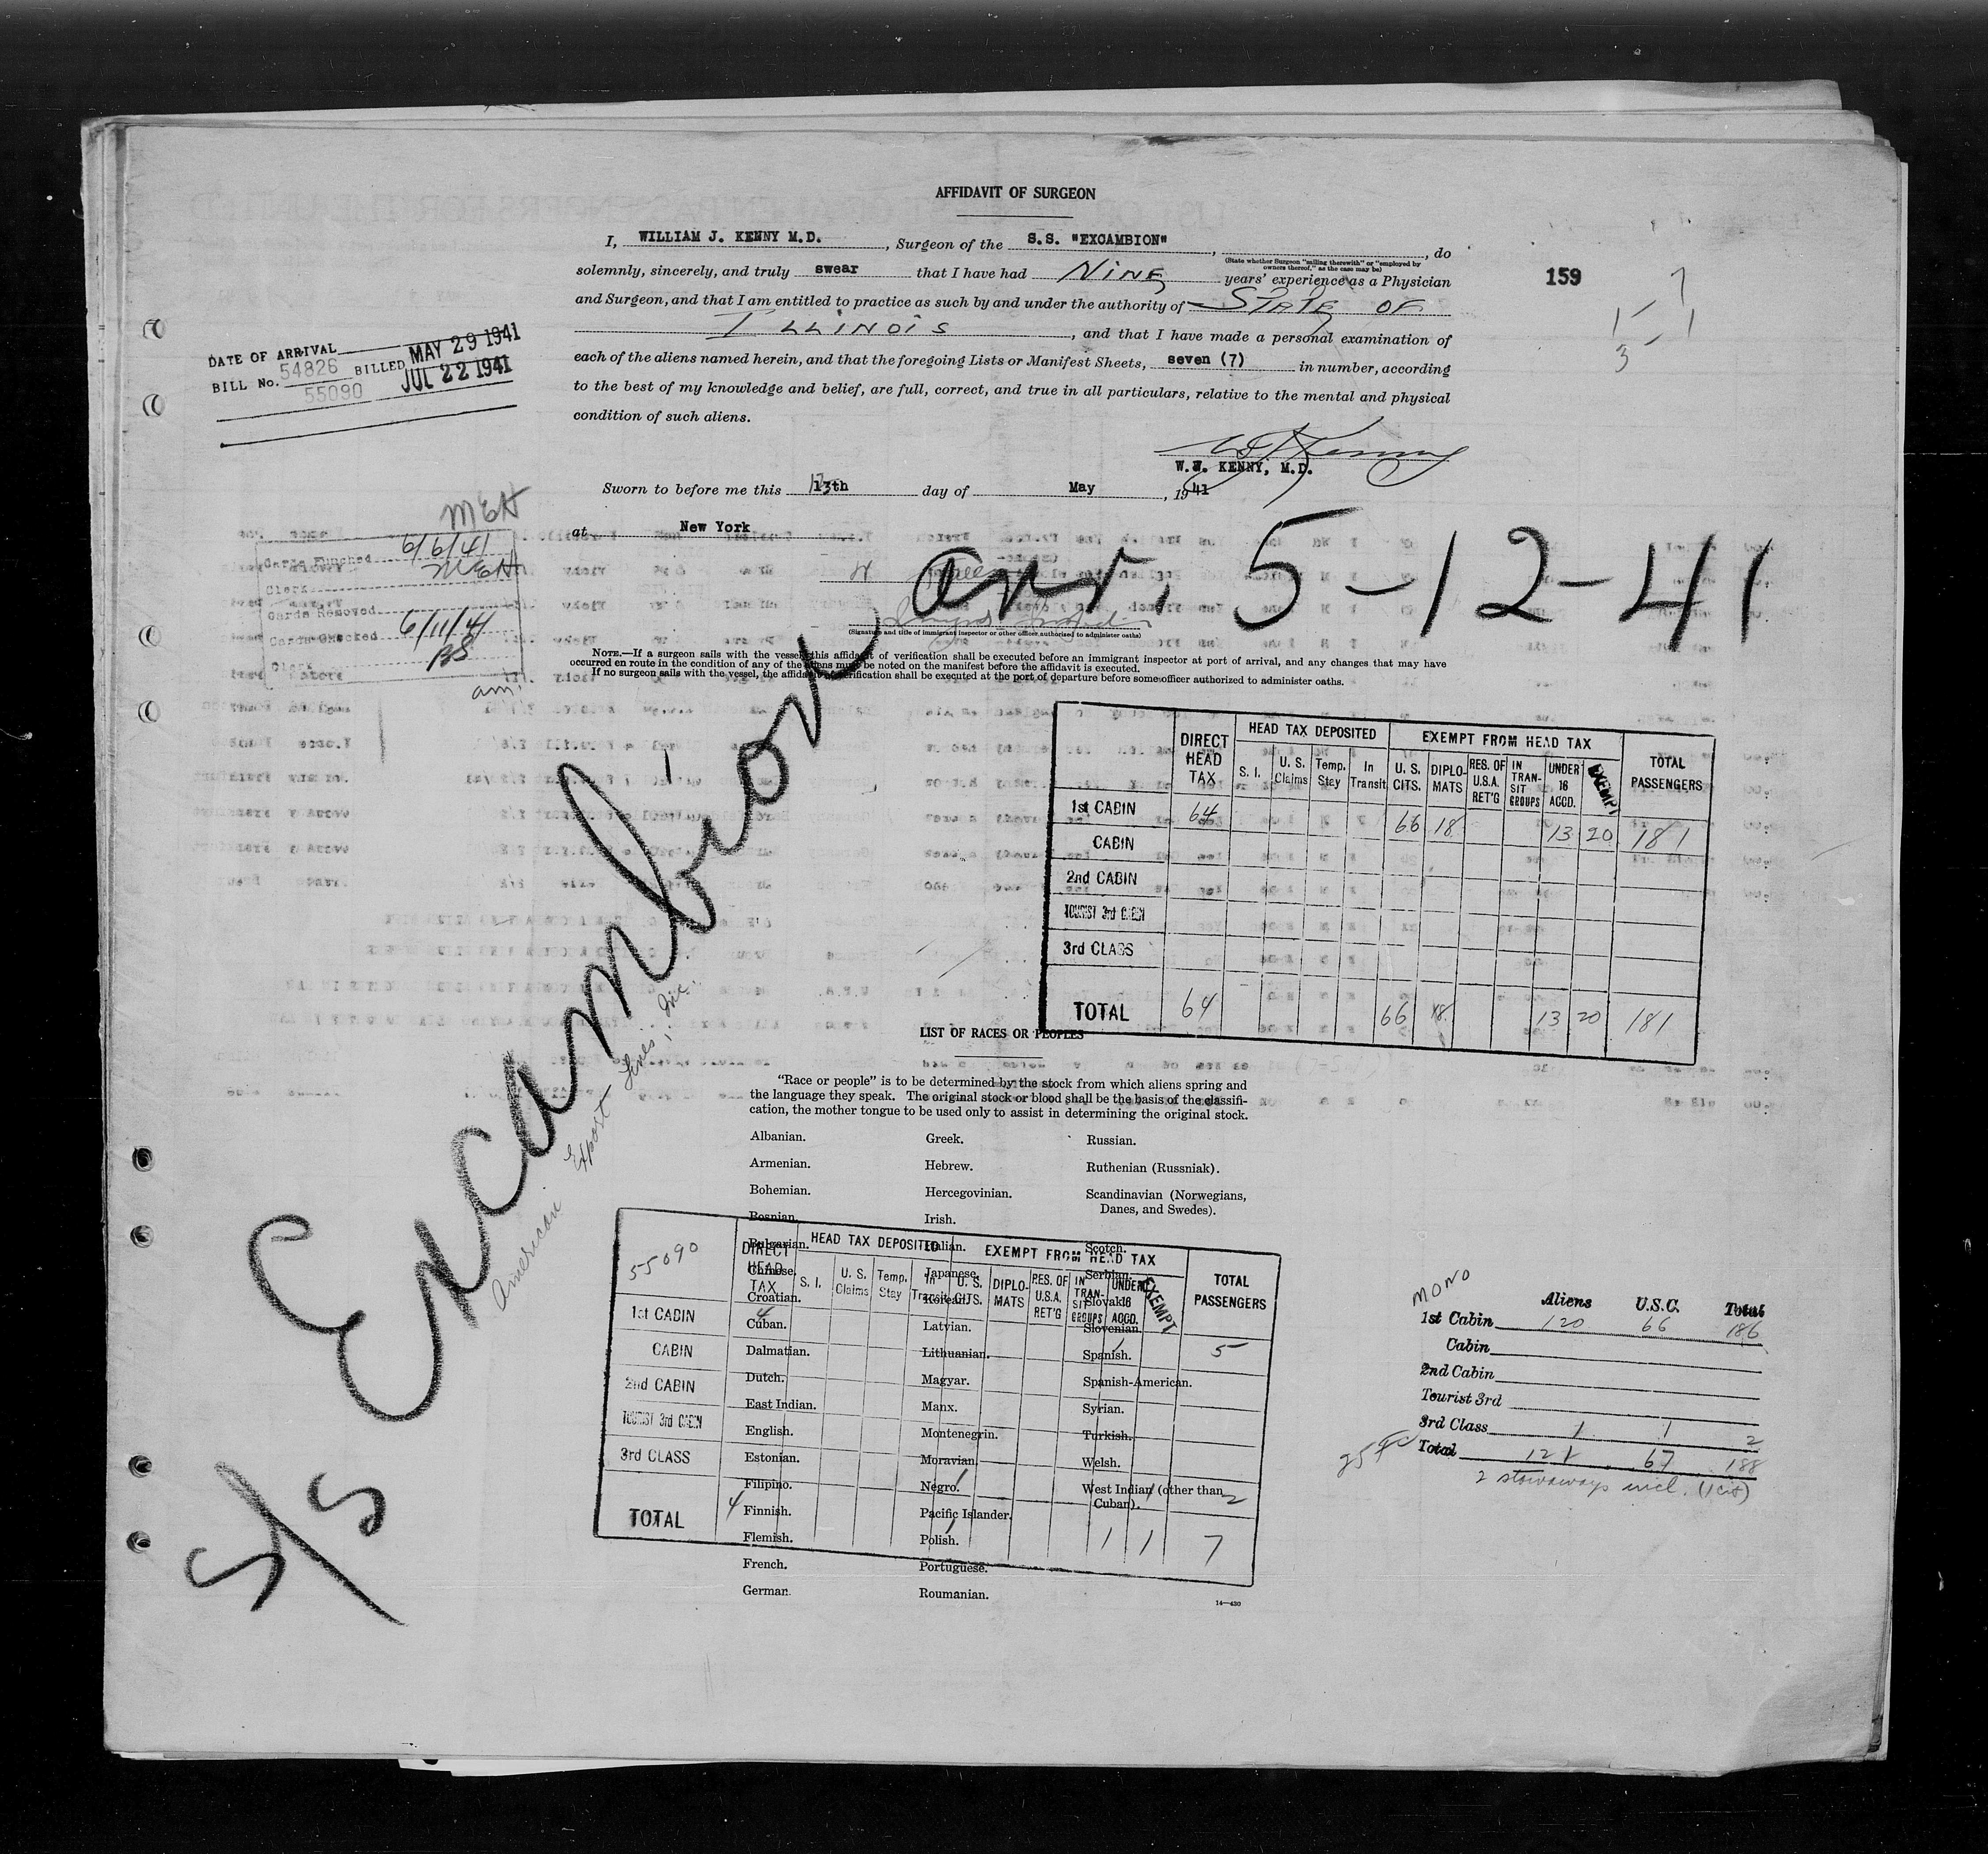 AFFIDAVIT OF SURGEON
I, WILLIAM J. KENNY M.D., Surgeon of the S.S. "EXCAMBION", , do
(State whether Surgeon "sailing therewith" or "employed by owners thereof," as the case may be)
solemnly, sincerely, and truly swear that I have had NINE years' experience as a Physician
and Surgeon, and that I am entitled to practice as such by and under the authority of STATE OF
ILLINOIS, and that I have made a personal examination of
each of the aliens named herein, and that the foregoing Lists or Manifest Sheets, seven (7) in number, according
to the best of my knowledge and belief, are full, correct, and true in all particulars, relative to the mental and physical
condition of such aliens.
159
3
DATE OF ARRIVAL MAY 29 1941
BILL No. 54826 BILLED JUL 22 1941
55090
W J Kenny
W.W. KENNY, M.D.
Sworn to before me this 13th day of May, 1941
at New York
MEH
Cards Punched 6/6/41
Clerk MEH
Cards Removed
Cards Checked 6/11/41
Clerk BS
am.
arr. 5-12-41
(Signature and title of immigrant inspector or other officer authorized to administer oaths)
NOTE.—If a surgeon sails with the vessel, this affidavit of verification shall be executed before an immigrant inspector at port of arrival, and any changes that may have
occurred en route in the condition of any of the aliens must be noted on the manifest before the affidavit is executed.
If no surgeon sails with the vessel, the affidavit of verification shall be executed at the port of departure before some officer authorized to administer oaths.
S/S Excambion
American Export Lines, Inc.
DIRECT HEAD TAX HEAD TAX DEPOSITED EXEMPT FROM HEAD TAX TOTAL PASSENGERS
S. I. U. S. Claims Temp. Stay In Transit U. S. CITS. DIPLOMATS RES. OF U.S.A. RET'G IN TRANSIT GROUPS UNDER 16 ACCD. EXEMPT
1st CABIN 64 66 18 13 20 181
CABIN
2nd CABIN
TOURIST 3rd CABIN
3rd CLASS
TOTAL 64 66 18 13 20 181
LIST OF RACES OR PEOPLES
"Race or people" is to be determined by the stock from which aliens spring and
the language they speak. The original stock or blood shall be the basis of the classifi-
cation, the mother tongue to be used only to assist in determining the original stock.
Albanian.
Armenian.
Bohemian.
Bosnian.
Bulgarian.
Chinese.
Croatian.
Cuban.
Dalmatian.
Dutch.
East Indian.
English.
Estonian.
Filipino.
Finnish.
Flemish.
French.
German.
Greek.
Hebrew.
Hercegovinian.
Irish.
Italian.
Japanese.
Korean.
Latvian.
Lithuanian.
Magyar.
Manx.
Montenegrin.
Moravian.
Negro.
Pacific Islander.
Polish.
Portuguese.
Roumanian.
Russian.
Ruthenian (Russniak).
Scandinavian (Norwegians,
Danes, and Swedes).
Scotch.
Serbian.
Slovak.
Slovenian.
Spanish.
Spanish-American.
Syrian.
Turkish.
Welsh.
West Indian (other than
Cuban).
14—430
55090
DIRECT HEAD TAX HEAD TAX DEPOSITED EXEMPT FROM HEAD TAX TOTAL PASSENGERS
S. I. U. S. Claims Temp. Stay In Transit U. S. CITS. DIPLOMATS RES. OF U.S.A. RET'G IN TRANSIT GROUPS UNDER 16 ACCD. EXEMPT
1st CABIN 4 1 5
CABIN
2nd CABIN
TOURIST 3rd CABIN
3rd CLASS 1 1 2
TOTAL 4 1 1 1 7
MONO
Aliens U.S.C. Total
1st Cabin 120 66 186
Cabin
2nd Cabin
Tourist 3rd
3rd Class 1 1 2
Total 121 67 188
2 stowaways incl. (1 cit)